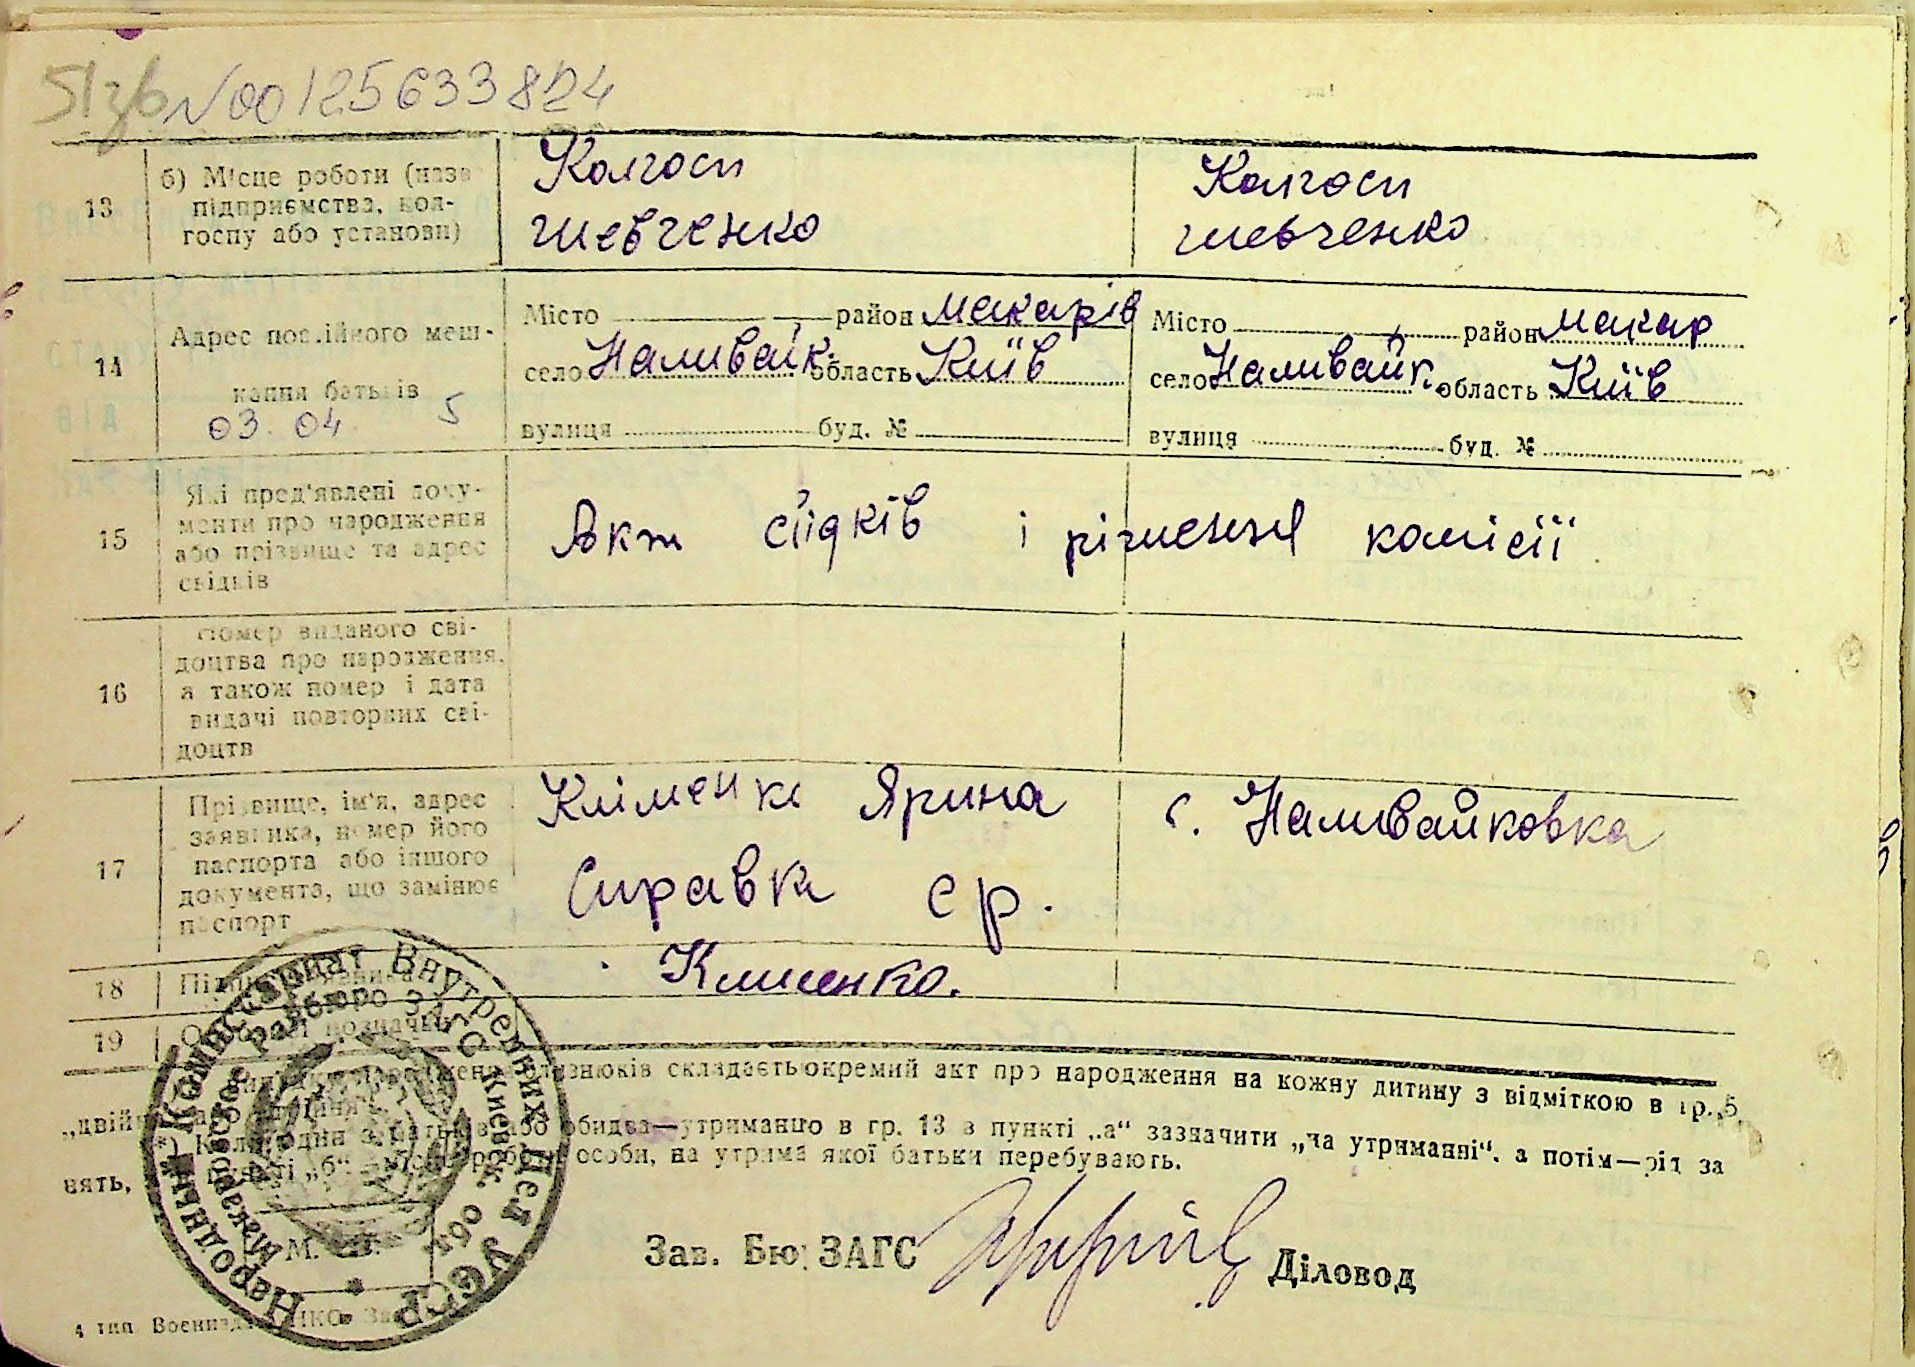 51зб №00125633824
13
б) Місце роботи (назв
підприємства, кол-
госпу або установи)
Колгосп
Шевченко
Колгосп
Шевченко
14
Адрес постійного меш-
кання батьків
03. 04. 5
Місто район Макарів
село Наливайк. область Київ
вулиця буд. №
Місто район Макар
село Наливайк. область Київ
вулиця буд. №
15
Які пред'явлені доку-
менти про народження
або прізвище та адрес
свідків
Акт свідків і рішення комісії
16
Номер виданого сві-
доцтва про народження,
а також номер і дата
видачі повторних сві-
доцтв
17
Прізвище, ім'я, адрес
заявника, номер його
паспорта або іншого
документа, що замінює
паспорт
Кліменко Ярина с. Наливайковка
Справка ср.
18
Клименко.
19
близнюків складається окремий акт про народження на кожну дитину з відміткою в гр. 5,
„двійн
або обидва—утриманцю в гр. 13 в пункті „а“ зазначити „на утриманні“, а потім—рід за
нять, „б“ особи, на утрима якої батьки перебувають.
Народный Комиссариат Внутренних Дел УССР
Макаровское Райбюро ЗАГС Киевск. обл.
М. П.
Зав. Бюр ЗАГС Діловод
4 тип Воениздата НКО. За